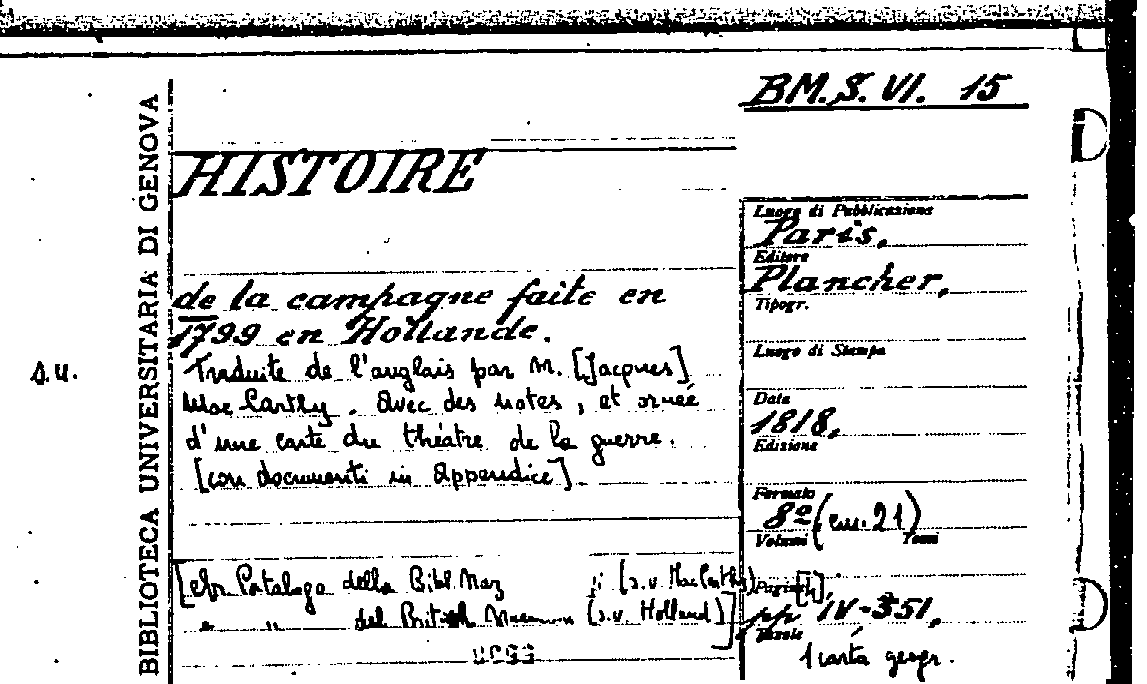 BM.S. VI. 15
BIBLIOTECA UNIVERSITARIA DI GENOVA
HISTOIRE
de la campagne faite en
1799 en Hollande.
Traduite de l'anglais par M. [Jacques]
Mac Carthy. Avec des notes, et ornée
d'une carte du théatre de la guerre.
[con documenti in Appendice]
s.u.
[cfr Catalogo della Bibl. Naz (s.v. MacCarthy)
" " del British Museum (s.v. Holland)]
Luogo di Pubblicazione
Paris,
Editore
Plancher,
Tipogr.
Luogo di Stampa
Data
1818,
Edizione
Formato
8º (cm. 21)
Volumi Tomi
Pagine
pp IV-351,
Tavole
1 carta geogr.